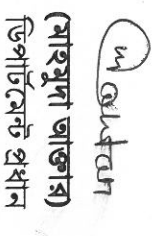 (মাহমুদা আক্তার)
ডিপার্টমেন্ট প্রধান